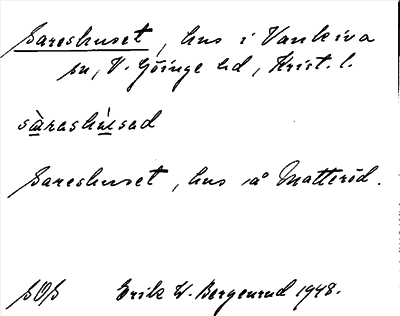 Sareshuset, hus i Vankiva
sn, V. Göinge hd, Krist. l.
sàrashùsad
Sareshuset, hus å Matteröd.
SOS Erik W. Bergenrud 1948.